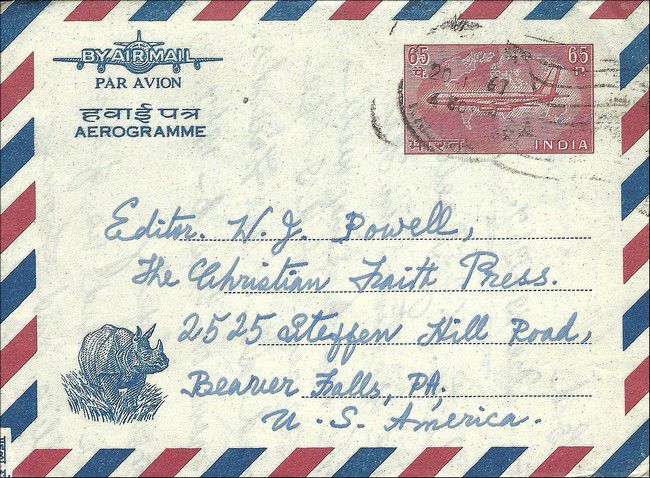 BY AIR MAIL
PAR AVION
हवाई पत्र
AEROGRAMME
65 65
पै. P.
20 1 67
भारत INDIA
Editor. W. J. Powell,
The Christian Faith Press.
2525 Steffen Hill Road,
Beaver Falls, PA.
U. S. America.